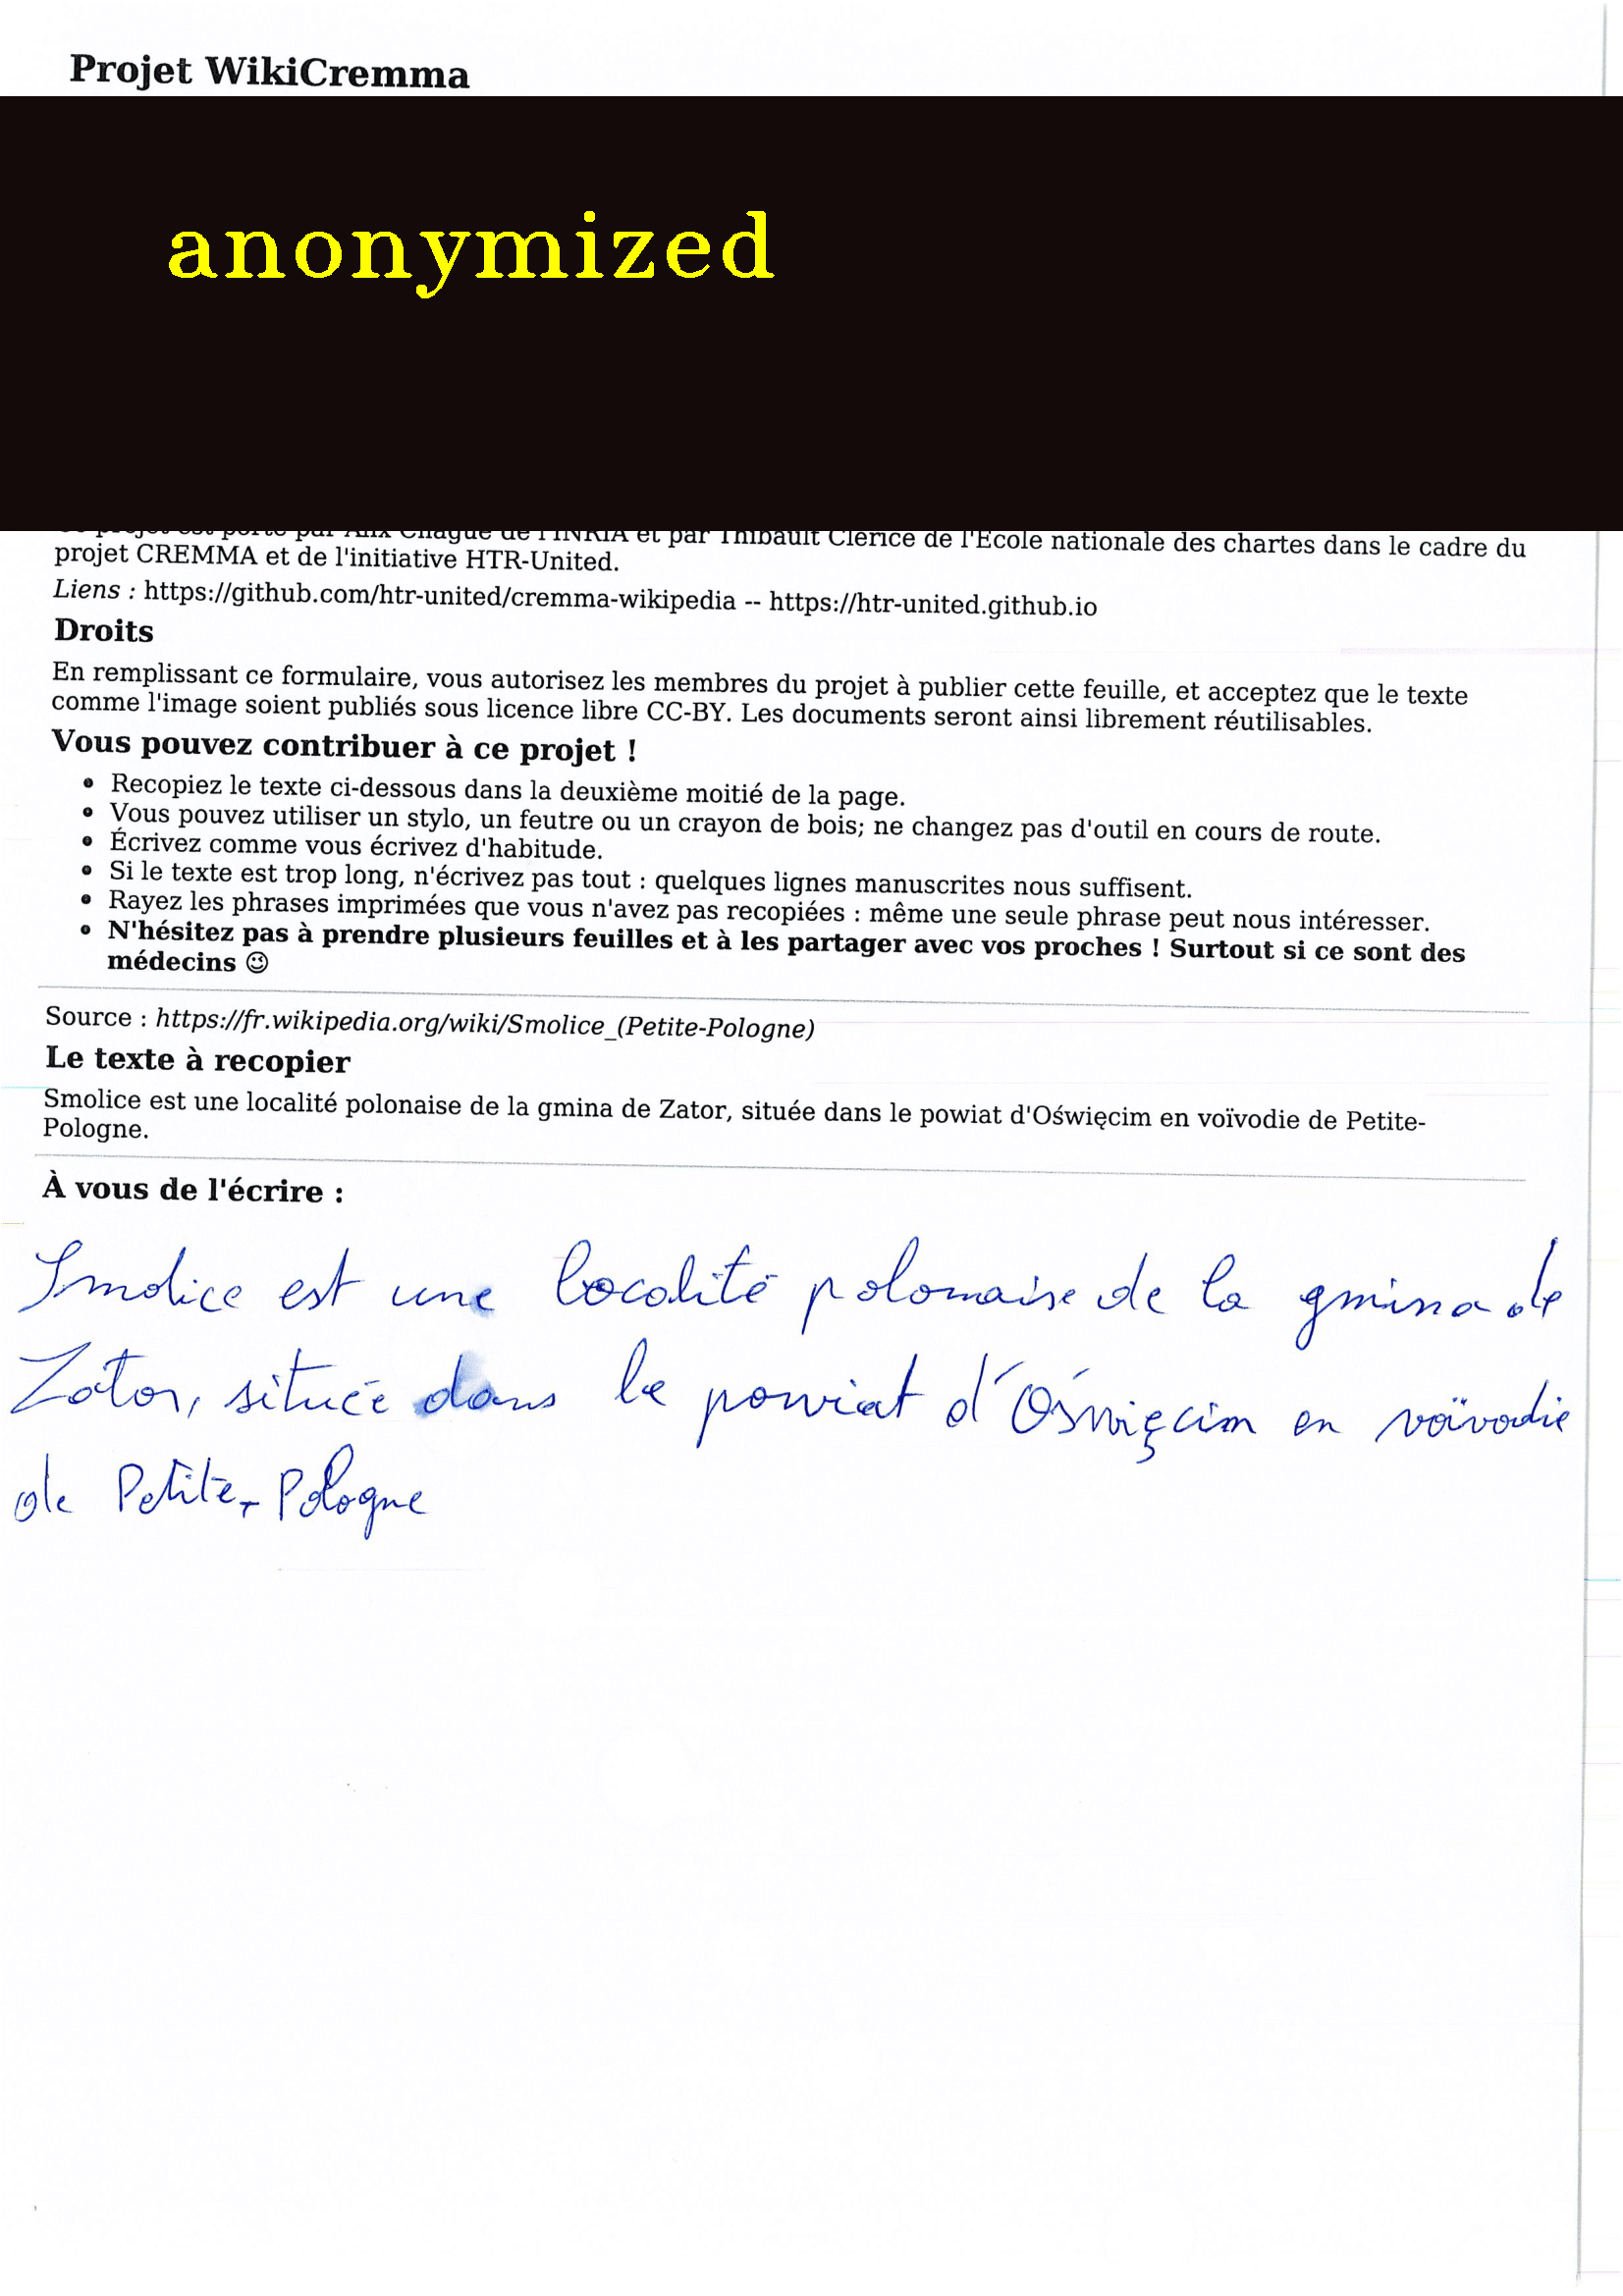 Projet WikiCremma
anonymized
Ce projet est porté par Alix Chagué de l'INRIA et par Thibault Clérice de l'École nationale des chartes dans le cadre du
projet CREMMA et de l'initiative HTR-United.
Liens : https://github.com/htr-united/cremma-wikipedia -- https://htr-united.github.io
Droits
En remplissant ce formulaire, vous autorisez les membres du projet à publier cette feuille, et acceptez que le texte
comme l'image soient publiés sous licence libre CC-BY. Les documents seront ainsi librement réutilisables.
Vous pouvez contribuer à ce projet !
• Recopiez le texte ci-dessous dans la deuxième moitié de la page.
• Vous pouvez utiliser un stylo, un feutre ou un crayon de bois; ne changez pas d'outil en cours de route.
• Écrivez comme vous écrivez d'habitude.
• Si le texte est trop long, n'écrivez pas tout : quelques lignes manuscrites nous suffisent.
• Rayez les phrases imprimées que vous n'avez pas recopiées : même une seule phrase peut nous intéresser.
• N'hésitez pas à prendre plusieurs feuilles et à les partager avec vos proches ! Surtout si ce sont des
médecins ☺
Source : https://fr.wikipedia.org/wiki/Smolice_(Petite-Pologne)
Le texte à recopier
Smolice est une localité polonaise de la gmina de Zator, située dans le powiat d'Oświęcim en voïvodie de Petite-
Pologne.
À vous de l'écrire :
Smolice est une localité polonaise de la gmina de
Zator, située dans le powiat d'Oświęcim en voïvodie
de Petite-Pologne